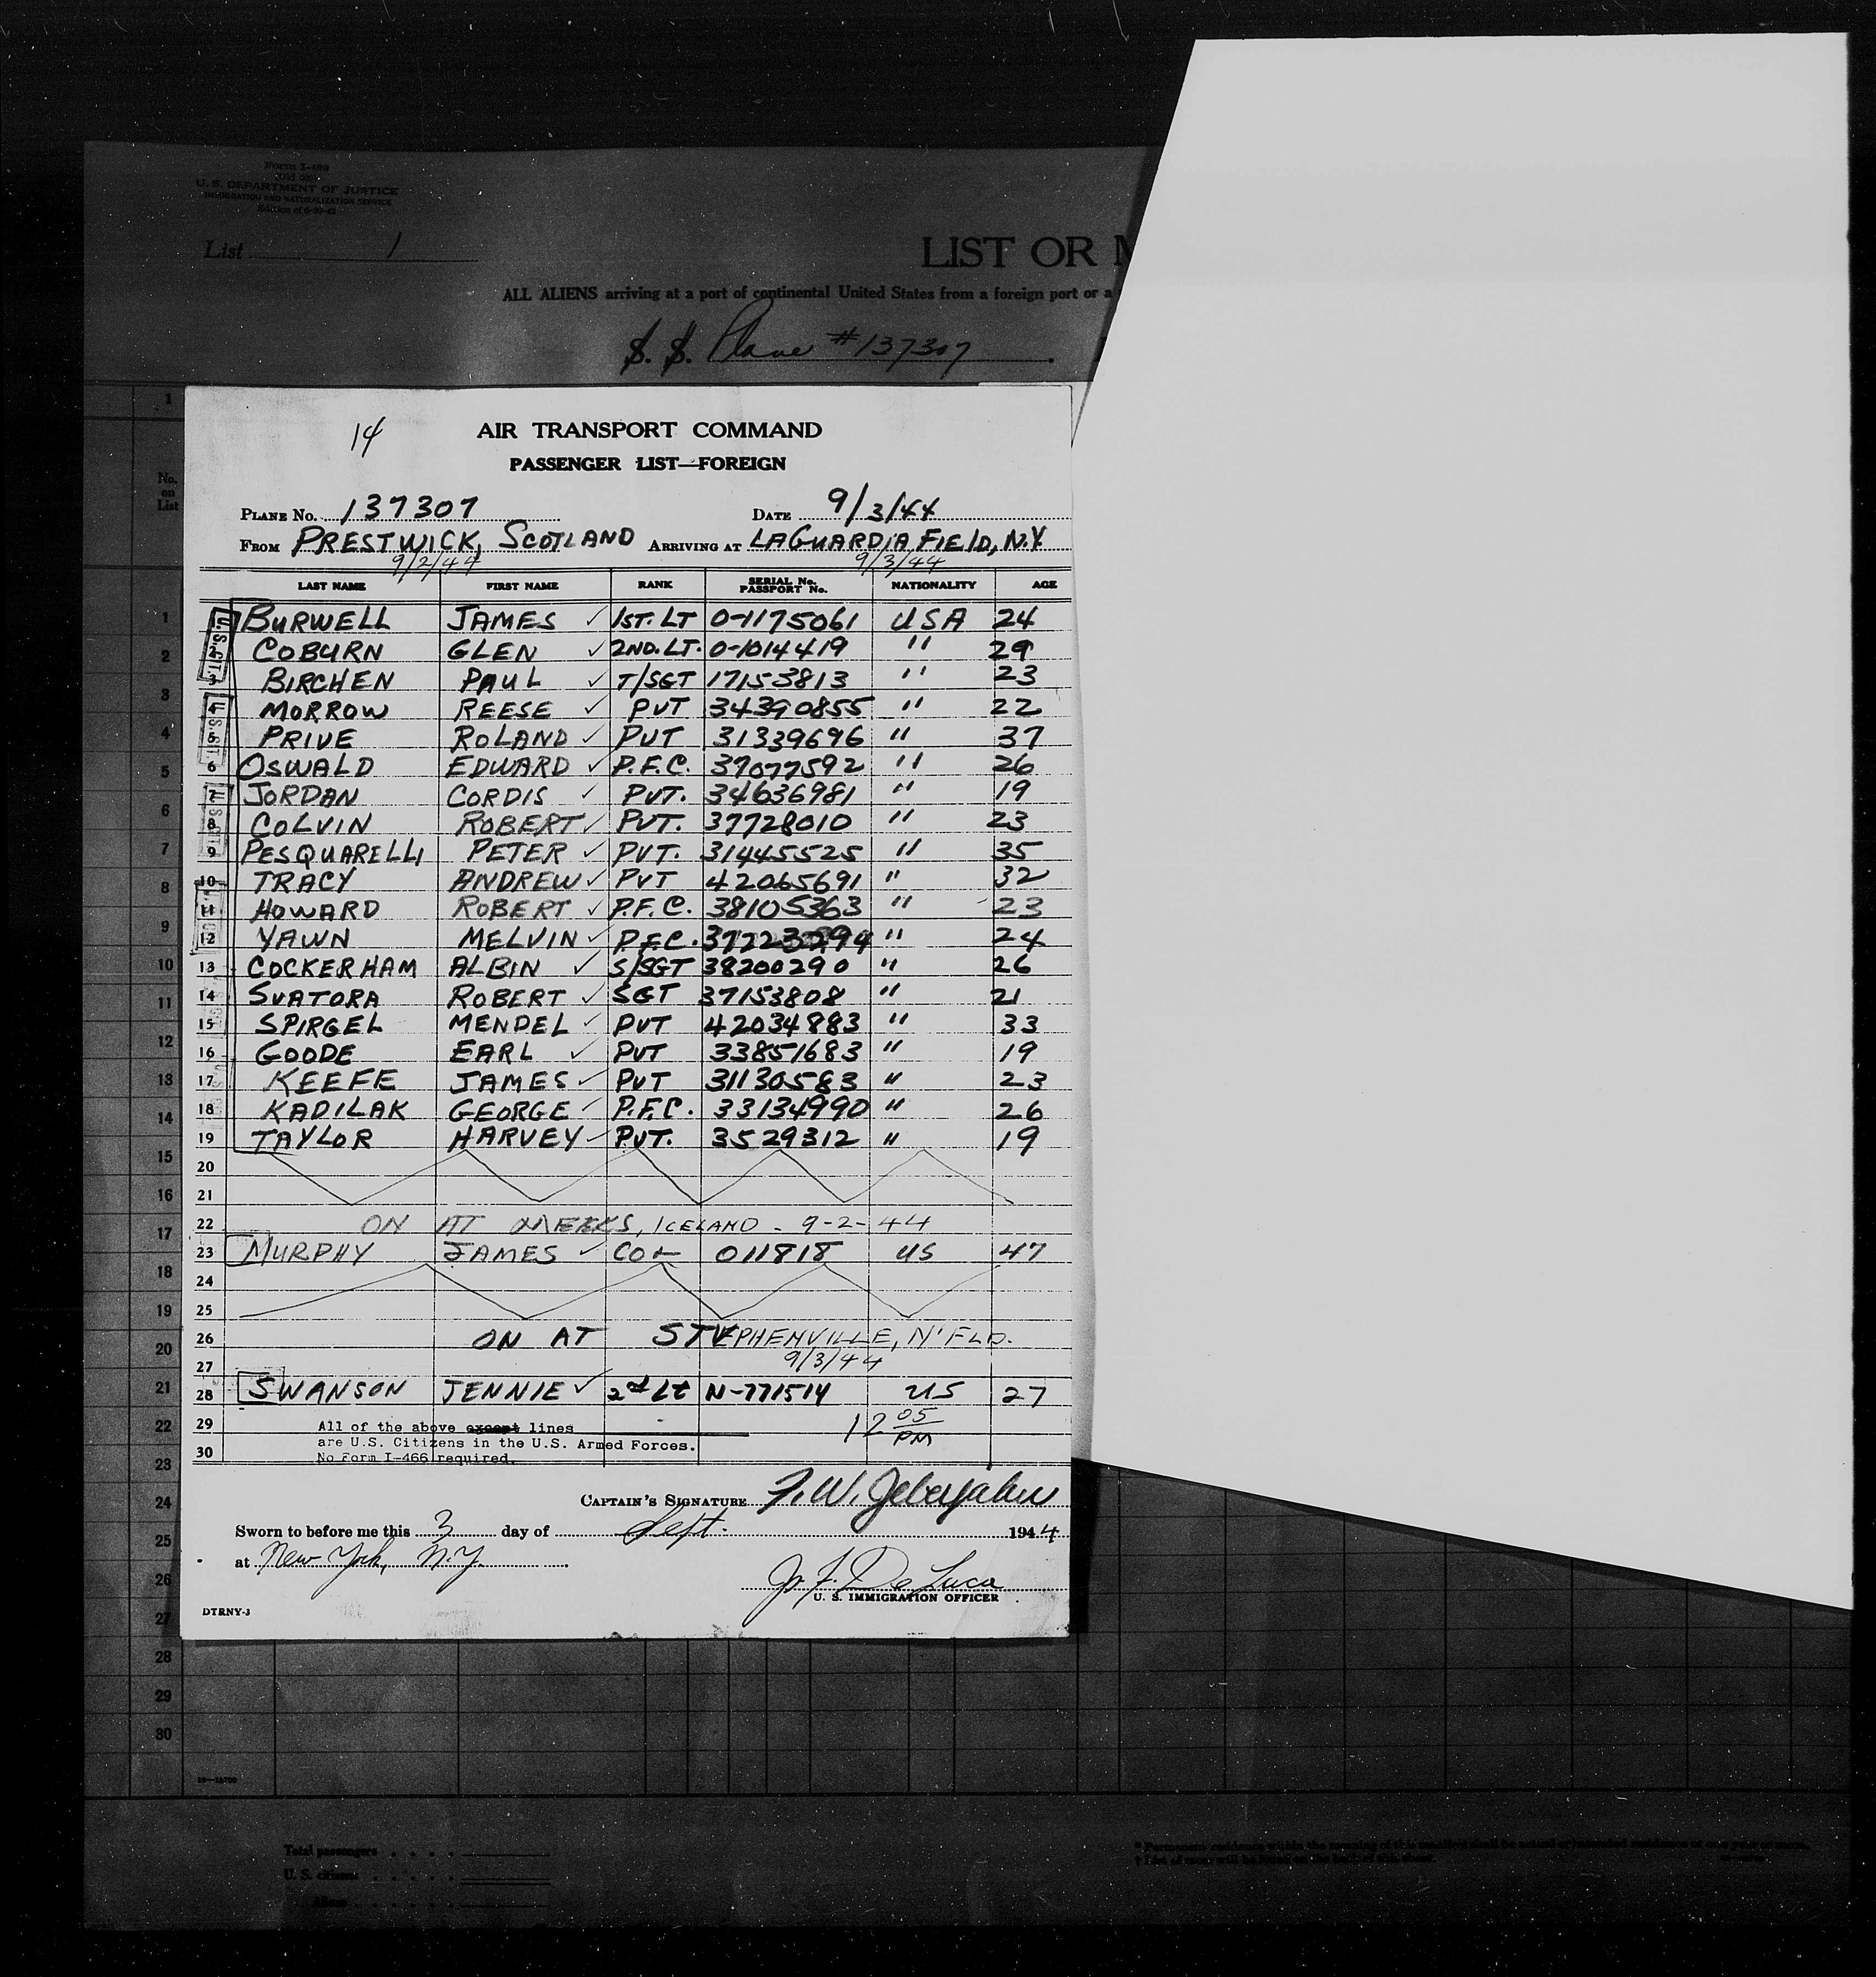 Form I-400
U. S. DEPARTMENT OF JUSTICE
IMMIGRATION AND NATURALIZATION SERVICE
List 1
LIST OR M
ALL ALIENS arriving at a port of continental United States from a foreign port or a
S. S. Plane #137307
14
AIR TRANSPORT COMMAND
PASSENGER LIST—FOREIGN
PLANE No. 137307 DATE 9/3/44
FROM PRESTWICK, SCOTLAND ARRIVING AT LAGUARDIA FIELD, N.Y.
9/2/44 9/3/44
LAST NAME FIRST NAME RANK SERIAL No. PASSPORT No. NATIONALITY AGE
1 BURWELL JAMES ✓ 1ST. LT 0-1175061 USA 24
2 COBURN GLEN ✓ 2ND. LT. 0-1014419 " 29
3 BIRCHEN PAUL ✓ T/SGT 17153813 " 23
4 MORROW REESE ✓ PVT 34390855 " 22
5 PRIVE ROLAND ✓ PVT 31339696 " 37
6 OSWALD EDWARD ✓ P.F.C. 37077592 " 26
7 JORDAN CORDIS ✓ PVT. 34636981 " 19
8 COLVIN ROBERT ✓ PVT. 37728010 " 23
9 PESQUARELLI PETER ✓ PVT. 31445525 " 35
10 TRACY ANDREW ✓ PVT 42065691 " 32
11 HOWARD ROBERT ✓ P.F.C. 38105363 " 23
12 YAWN MELVIN ✓ P.F.C. 37223294 " 24
13 COCKERHAM ALBIN ✓ S/SGT 38200290 " 26
14 SVATORA ROBERT ✓ SGT 37153808 " 21
15 SPIRGEL MENDEL ✓ PVT 42034883 " 33
16 GOODE EARL ✓ PVT 33851683 " 19
17 KEEFE JAMES ✓ PVT 31130583 " 23
18 KADILAK GEORGE ✓ P.F.C. 33134990 " 26
19 TAYLOR HARVEY ✓ PVT. 3529312 " 19
20
21
22 ON AT MEEKS, ICELAND - 9-2-44
23 MURPHY JAMES ✓ COL 011818 US 47
24
25
26 ON AT STEPHENVILLE, N'FLD.
27 9/3/44
28 SWANSON JENNIE ✓ 2nd Lt N-771514 US 27
29 All of the above except lines 12 05 PM
are U.S. Citizens in the U.S. Armed Forces.
30 No Form I-466 required.
CAPTAIN'S SIGNATURE
Sworn to before me this 3 day of Sept. 1944
at New York, N.Y.
J. F. De Luca
U. S. IMMIGRATION OFFICER
DTRNY-3
No. on List
1
2
3
4
5
6
7
8
9
10
11
12
13
14
15
16
17
18
19
20
21
22
23
24
25
26
27
28
29
30
Total passengers
U. S. citizens
Aliens